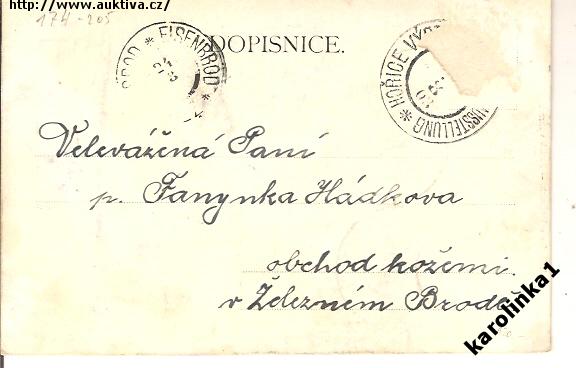 http://www.auktiva.cz/
174-205
DOPISNICE.
BROD * EISENBROD *
* HOŘICE VÝS
AUSSTELLUNG
03
Velevážená Paní
p. Fanynka Hádkova
obchod kožemi
v Železném Brodě
karolinka1